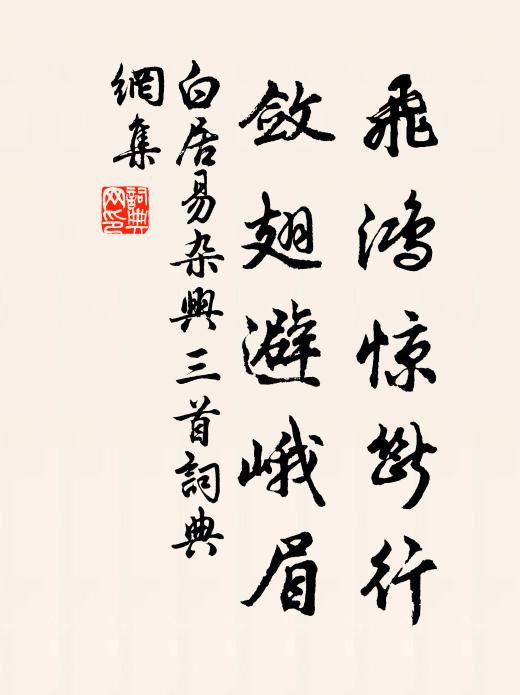 飛鸿惊斷行
斂翅避峨眉
白居易杂興三首詞典
網集
詞典
网印